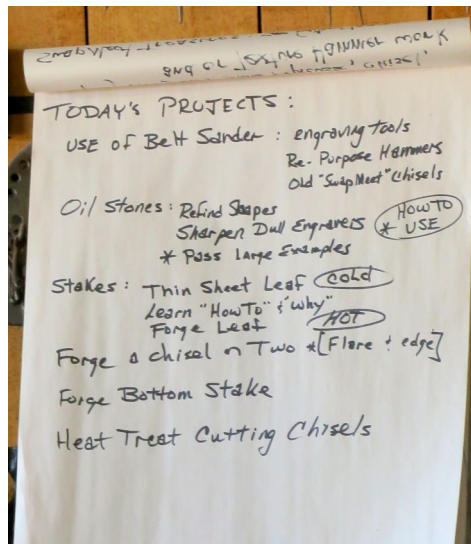 TODAY'S PROJECTS:
USE of Belt Sander: engraving tools
Re-Purpose Hammers
Old "Swap Meet" Chisels
Oil Stones: Refind Shapes
Sharpen Dull Engravers
* Pass Large Examples
HOW TO
* USE
Stakes: Thin Sheet Leaf COLD
Learn "How To" & "Why"
Forge Leaf HOT
Forge a chisel or Two *[Flare & edge]
Forge Bottom Stake
Heat Treat Cutting Chisels